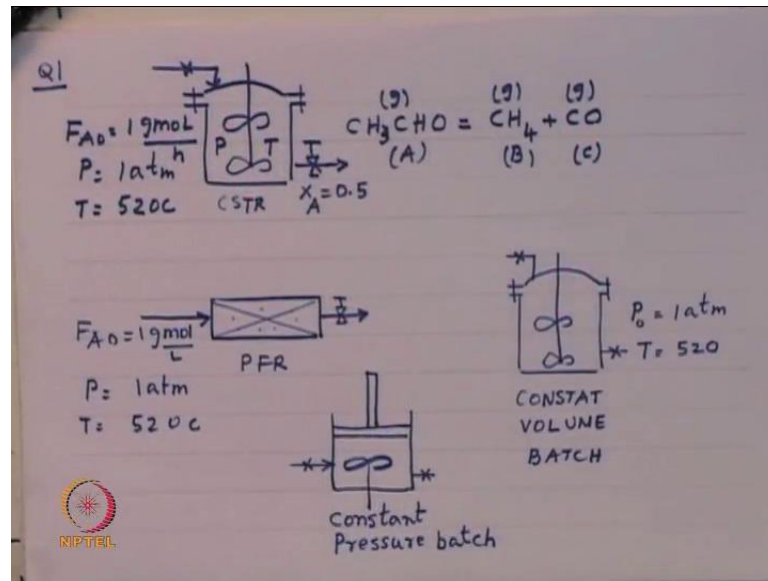 Q1
F_A0 = 1 gmol/h
P = 1 atm
T = 520C
P T
CSTR
X_A = 0.5
(g) (g) (g)
CH3CHO = CH4 + CO
(A) (B) (C)
F_A0 = 1 gmol/L
P = 1 atm
T = 520C
PFR
P_0 = 1 atm
T = 520
CONSTAT
VOLUNE
BATCH
Constant
Pressure batch
NPTEL